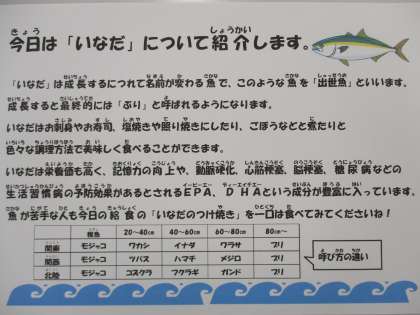 今日は「いなだ」について紹介します。
「いなだ」は成長するにつれて名前が変わる魚で、このような魚を「出世魚」といいます。
成長すると最終的には「ぶり」と呼ばれるようになります。
いなだはお刺身やお寿司、塩焼きや照り焼きにしたり、ごぼうなどと煮たりと
色々な調理方法で美味しく食べることができます。
いなだは栄養価も高く、記憶力の向上や、動脈硬化、心筋梗塞、脳梗塞、糖尿病などの
生活習慣病の予防効果があるとされるEPA、DHAという成分が豊富に入っています。
魚が苦手な人も今日の給食の「いなだのつけ焼き」を一口は食べてみてくださいね!
稚魚 20～40cm 40～60cm 60～80cm 80cm～
関東 モジャコ ワカシ イナダ ワラサ ブリ
関西 モジャコ ツバス ハマチ メジロ ブリ
北陸 モジャコ コズクラ フクラギ ガンド ブリ
呼び方の違い